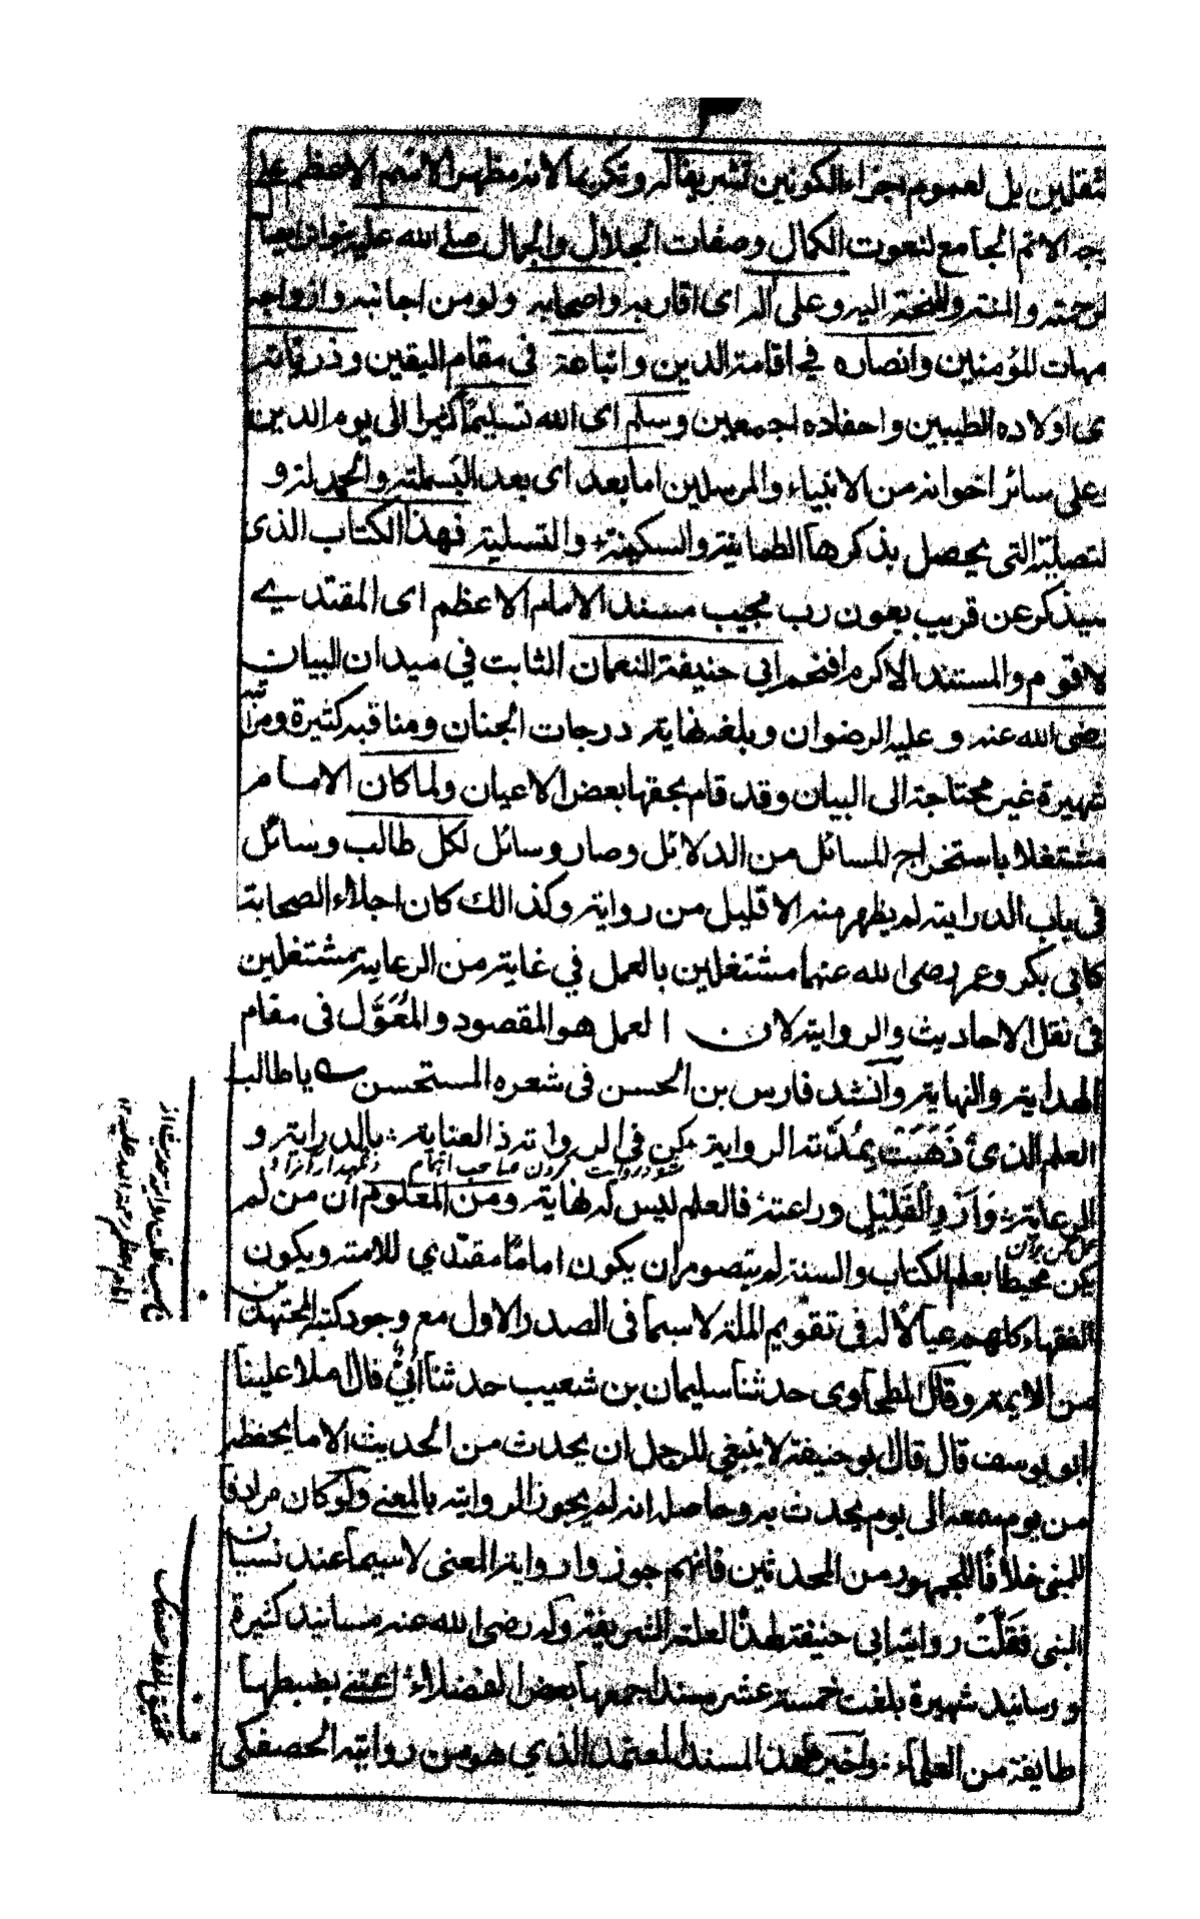 ثقلين بل لعموم اجزاء الكونين تشريفا له وتكريما لانه مظهر الاسم الاعظم على
جه الاتم الجامع لنعوت الكمال وصفات الجلال والجمال صلى الله عليه
لرحمته والمنة والمنحة اليه وعلى اله اى اقاربه واصحابه ولو من اجانبه وازواجه
مهات للمؤمنين وانصاره في اقامة الدين واتباعه في مقام اليقين وذرياته
ى اولاده الطيبين واحفاده اجمعين وسلم اى الله تسليما كثيرا الى يوم الدين
وعلى سائر اخوانه من الانبياء والمرسلين اما بعد اى بعد البسملة والحمدلة و
لتصلية التى يحصل بذكرها الطمانية والسكينة والتسلية فهذا الكتاب الذى
سيذكر عن قريب بعون رب مجيب مسند الامام الاعظم اى المقتدي
لاقوم والمستند الاكرم افخم ابي حنيفة النعمان الثابت في ميدان البيان
رضى الله عنه وعليه الرضوان وبلغه نهاية درجات الجنان ومناقبه كثيرة ومراتبه
شهيرة غير محتاجة الى البيان وقد قام بحقها بعض الاعيان ولما كان الامام
مشتغلا باستخراج المسائل من الدلائل وصار وسائل لكل طالب وسائل
في باب الدراية لم يظهر منه الا قليل من رواية وكذالك كان اجلاء الصحابة
كابي بكر وعمر رضى الله عنهما مشتغلين بالعمل في غاية من الرعاية مشتغلين
في نقل الاحاديث والرواية لان العمل هو المقصود والمُعَوَّل فى مقام
الهداية والنهاية وانشد فارس بن الحسن فى شعره المستحسن يا طالب
العلم الذى ذَهَبَت بمُدَّته الرواية كن فى الرواية ذا العناية بالدراية و
الرعاية وَاَرْوِ القَلِيْلَ وراعته فالعلم ليس له نهاية ومن المعلوم ان من لم
يكن محيطا بعلم الكتاب والسنة لم يتصور ان يكون اماما مقتدي للامة ويكون
الفقهاء كلهم عيالا له فى تقويم الملة لاسيما فى الصدر الاول مع وجود كثرة المجتهدين
من الايمة وقال الطحاوى حدثنا سليمان بن شعيب حدثنا أبي قال املا علينا
ابو يوسف قال قال بو حنيفة لا ينبغي للرجل ان يحدث من الحديث الا ما يحفظه
من يوم سمعه الى يوم يحدث به وحاصله انه لم يجوز الرواية بالمعنى ولو كان مرادفا
للمبنى خلافا للجمهور من المحدثين فانهم جوزوا رواية المعنى لاسيما عند نسيان
المبنى فقَلَّتْ رواية ابى حنيفة لهذا العلة الشريفة وله رضى الله عنه مسانيد كثيرة
و رسانيد شهيرة بلغت خمسة عشر مسندا جمعها بعض الفضلاء اعتنى بضبطها
طايفة من العلماء واختير هذا المسند المعتمد الذي هو من رواية الحصفكى